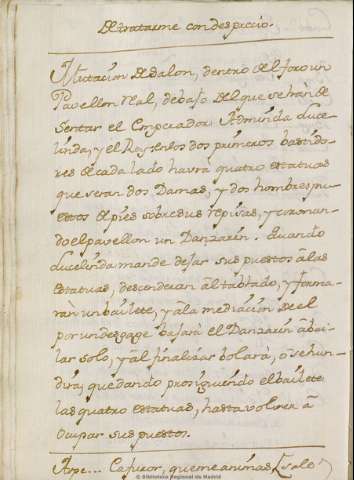 De tratarme con desprecio.
Mutación de salon, dentro del foro un
Pavellon Real, debajo del que se han de
Sentar el Emperador Arminda Luce-
linda, y el Rey. En los dos primeros bastido-
res de cada lado havrá quatro estatuas
que seran dos Damas, y dos hombres pu-
estos de pies sobre dus repisas, y coronan-
do el pavellon un Danzarin. Quando
Lucelinda mande dejar sus puestos á las
estatuas, descenderan al tablado, y forma-
ràn un bailete, y á la mediacion de el
por un desgage bajará el Danzarin á bai-
lar solo, y al finalizar bolarà, ò se hun-
dirá, quedando prosiguiendo el bailete
las quatro estatuas, hasta volver á
Ocupar sus puestos.
que me animas solo
© Biblioteca Regional de Madrid